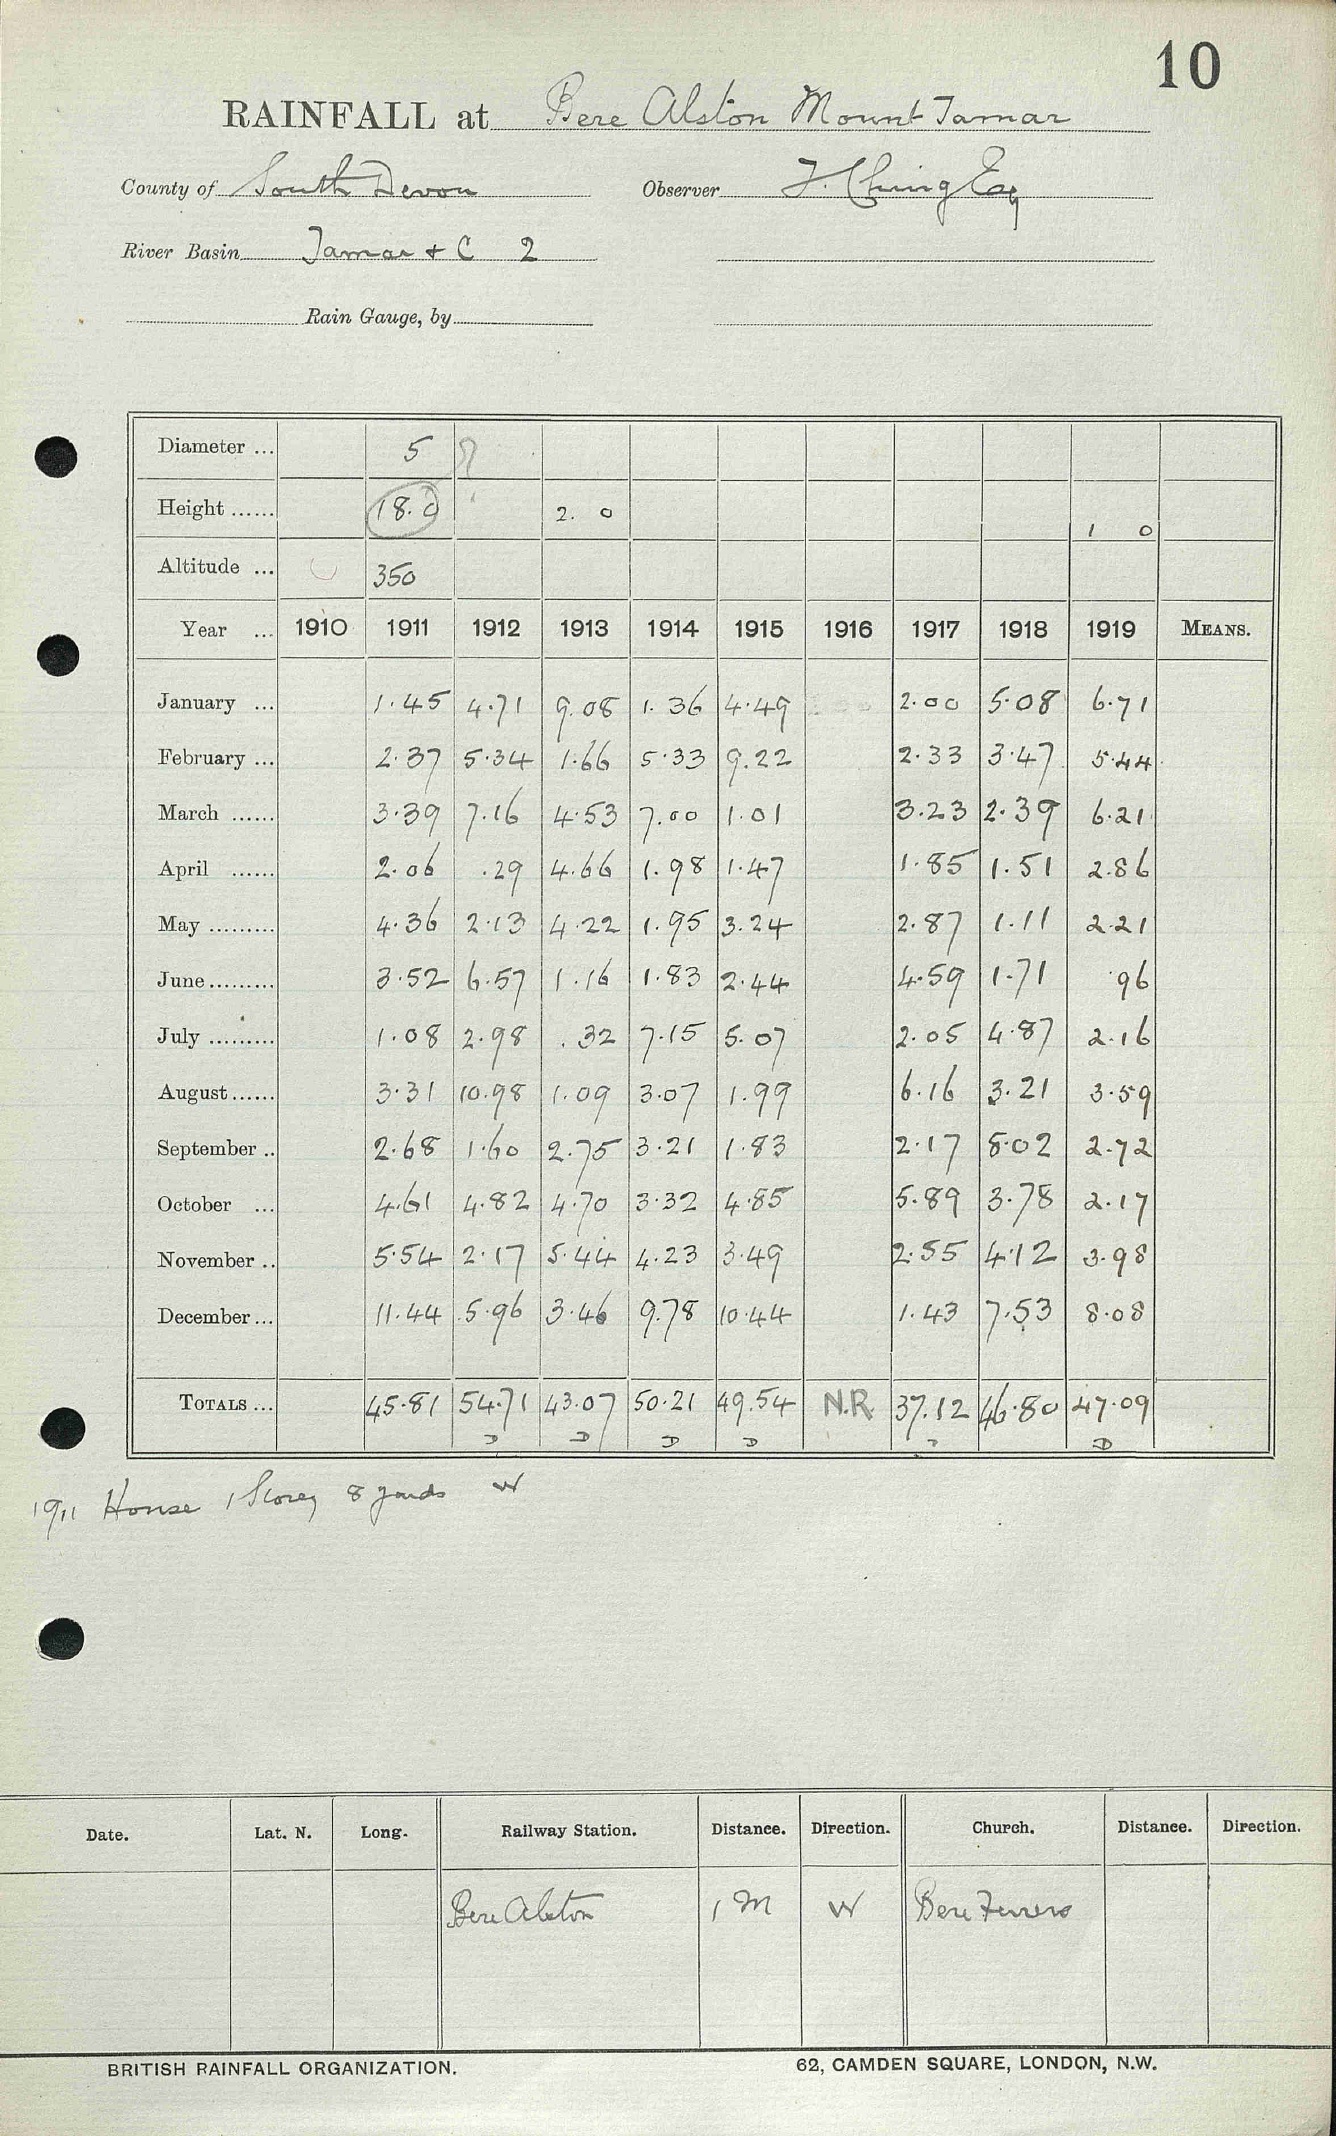 10
RAINFALL at Bere Alston Mount Tamar
County of South Devon Observer J. Ching Esq
River Basin Tamar + C 2
Rain Gauge, by
Diameter ... 5 ?
Height ...... 18.0 2. 0 1 0
Altitude ... 350
Year ... 1910 1911 1912 1913 1914 1915 1916 1917 1918 1919 MEANS.
January ... 1.45 4.71 9.08 1.36 4.49 2.00 5.08 6.71
February ... 2.37 5.34 1.66 5.33 9.22 2.33 3.47 5.44
March ...... 3.39 7.16 4.53 7.00 1.01 3.23 2.39 6.21
April ...... 2.06 .29 4.66 1.98 1.47 1.85 1.51 2.86
May ......... 4.36 2.13 4.22 1.95 3.24 2.87 1.11 2.21
June ......... 3.52 6.57 1.16 1.83 2.44 4.59 1.71 .96
July ......... 1.08 2.98 .32 7.15 5.07 2.05 4.87 2.16
August ...... 3.31 10.98 1.09 3.07 1.99 6.16 3.21 3.59
September .. 2.68 1.60 2.75 3.21 1.83 2.17 8.02 2.72
October ... 4.61 4.82 4.70 3.32 4.85 5.89 3.78 2.17
November .. 5.54 2.17 5.44 4.23 3.49 2.55 4.12 3.98
December ... 11.44 5.96 3.46 9.78 10.44 1.43 7.53 8.08
TOTALS ... 45.81 54.71 43.07 50.21 49.54 N.R. 37.12 46.80 47.09
D D D D D
1911 House 1 Storey 8 yards W
Date. Lat. N. Long. Railway Station. Distance. Direction. Church. Distance. Direction.
Bere Alston 1 M W Bere Ferrers
BRITISH RAINFALL ORGANIZATION. 62, CAMDEN SQUARE, LONDON, N.W.